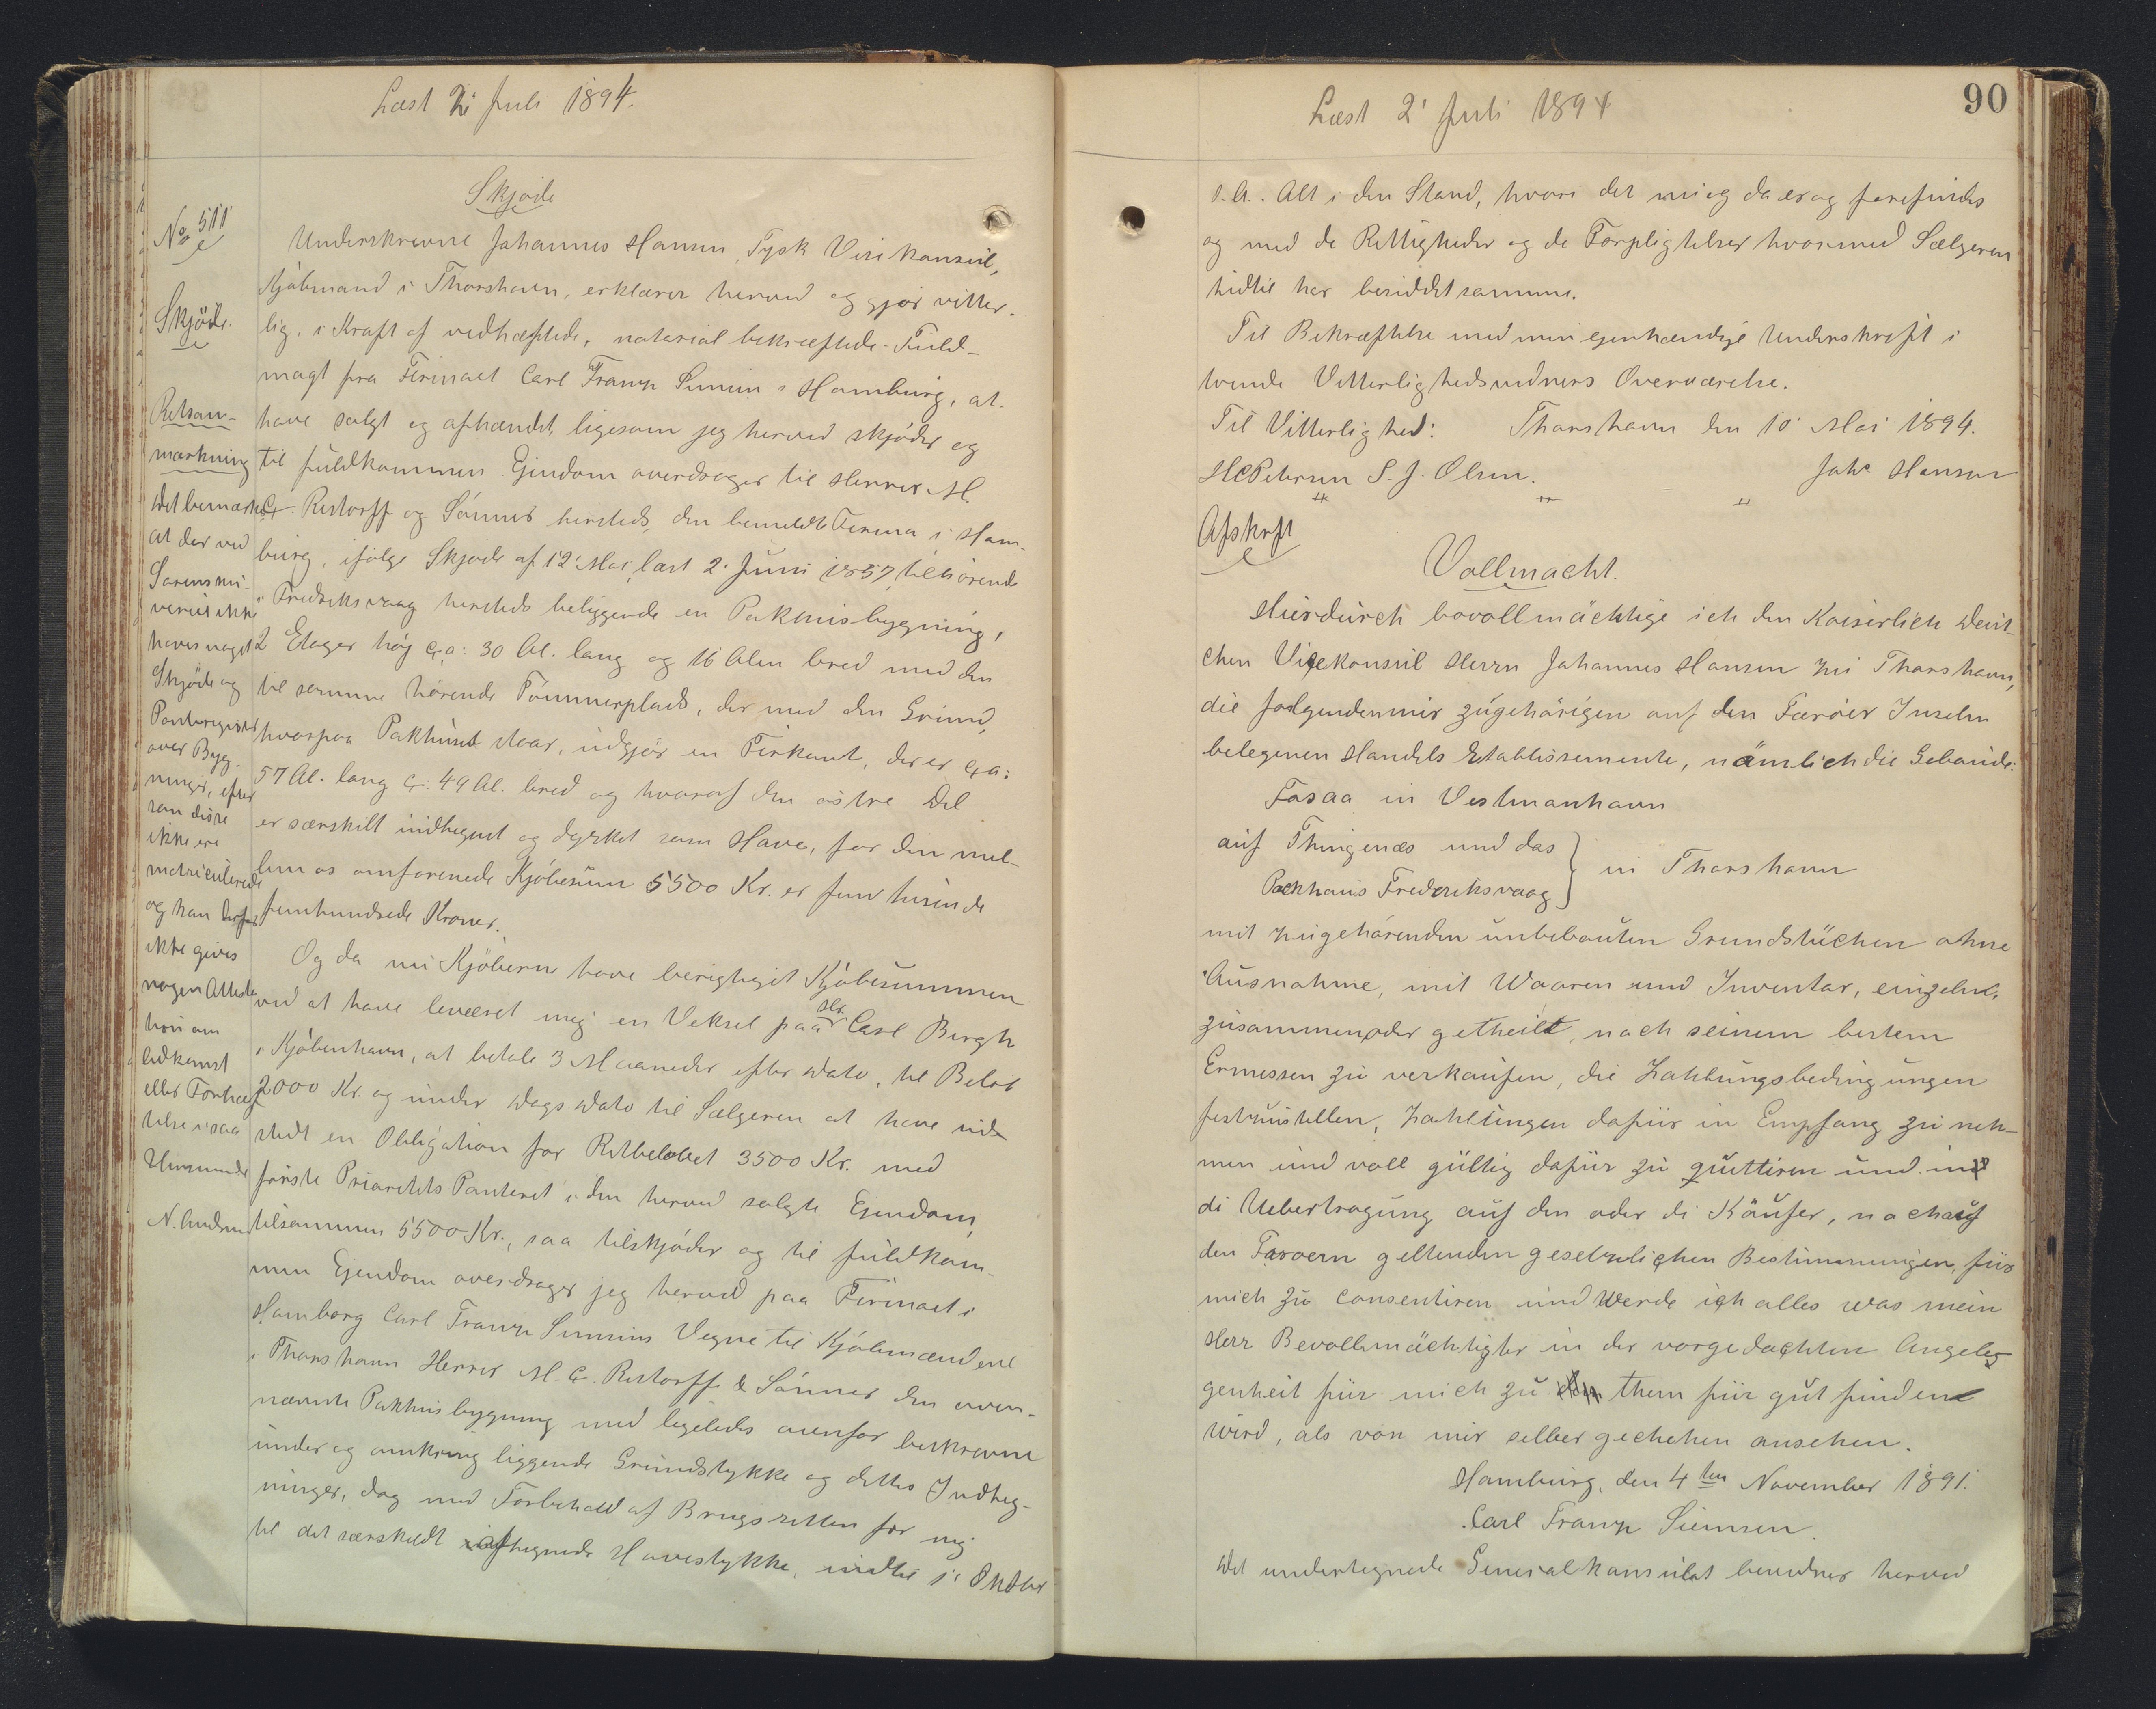 Læst 2 Juli 1894.
Skjøde
No 511
Skjöde.
Retsan-
mærkning
Det bemærkes
at der ved
Sorenskri-
veriet ikke
haves noget
Skjöde og
Panteregister
over Byg-
ninger, efter
som disse
ikke ere
matriculerede
og kan derfor
ikke gives
nogen Attest
hvor om
Adkomst
eller Forhæf
telse i saa
Henseende
N. Andersen
Underskrevne Johannes Hansen, Tysk Vicekonsul,
Kjöbmand i Thorshavn, erklærer herved og gjør vitter-
lig, i Kraft af vedhæftede, notarial bekræftede Fuld-
magt fra Firmaet Carl Franz Siemsen i Hamburg, at
have solgt og afhændet, ligesom jeg herved skjøder og
til fuldkommen Ejendom overdrager til Herrer M.
C. Restorff og Sönner hersteds, den bemeldte Firma i Ham-
burg, ifölge Skjöde af 12 Mai, læst 2. Juni 1857, tilhörende
i Fredriksvaag hersteds beliggende en Pakhusbygning,
2 Etager höj ca: 30 Al. lang og 16 Alen bred med den
til samme hörende Tömmerplads, der med den Grund,
hvorpaa Pakhuset staar, udgjör en Firkant, der er ca:
57 Al. lang ca: 49 Al. bred og hvoraf den östre Del
er særskilt indhegnet og dyrket som Have, for den mel-
lem os omforenede Kjöbesum 5500 Kr. er fem tusinde
femhundrede Kroner.
Og da nu Kjöberne have berigtiget Kjöbesummen
ved at have leveret mig en Veksel paa Hr. Carl Bergh
i Kjöbenhavn, at betale 3 Maaneder efter Dato, til Belöb
2000 Kr. og under Dags Dato til Sælgeren at have ud-
stedt en Obligation for Restbelobet 3500 Kr. med
förste Prioritets Panteret i den herved solgte Ejendom,
tilsammen 5500 Kr., saa tilskjöder og til fuldkom-
men Ejendom overdrager jeg herved paa Firmaet i
Hamborg Carl Franz Siemsens Vegne til Kjöbmændene
i Thorshavn Herrer M. C. Restorff & Sönner den oven-
nævnte Pakhusbygning med ligeledes ovenfor beskrevne
under og omkring liggende Grundstykke og dettes Indheg-
ninger, dog med Forbehold af Brugsretten for mig
til det særskildt afhegnede Havestykke, indtil 1' Oktober
Læst 2' Juli 1894
90
d. A. Alt i den Stand, hvori det nu og da er og forefindes
og med de Rettigheder og de Forpligtelser hvormed Sælgeren
hidtil har besiddet samme.
Til Bekræftelse med min egenhændige Underskrift i
tvende Vitterlighedsvidners Overværelse.
Til Vitterlighed: Thorshavn den 10 Mai 1894.
HCPetersen S. J. Olsen. Johs Hansen
Afskrft
Vollmacht.
Hierdurch bovollmächtige ich den Kaiserlich Deut-
chen Vicekonsul Herrn Johannes Hansen zu Thorshavn,
die folgenden mir zugehörigen auf den Færöer Inseln
belegenen Handels Etablissemente, nämlich die Gebäude:
Fosaa in Vestmanhavn
auf Thingenæs und das
Packhaus Frederiksvaag } in Thorshavn
mit zugehörenden unbebauten Grundstüchen ohne
Ausnahme, mit Waaren und Inventar, einzeln,
zusammen oder getheilt, nach seinem bestem
Ermessen zu verkaufen, die Zahlungsbedingungen
festzustellen, Zahlungen dafür in Empfang zu neh-
men und voll gültig dafür zu quittiren und in
di Uebertragung auf den oder di Käufer, nach auf
den Faroern geltenden gesetzlichen Bestimmungen, für
mich zu consentiren und werde ich alles was mein
Herr Bevollmächtigter in der vorgedachten Angele-
genheit für mich zu thun für gut finden
wird, als von mir selber gechehen ansehen.
Hamburg, den 4ten November 1891.
Carl Franz Siemsen.
Det undertegnede Generalkonsulat bevidner herved